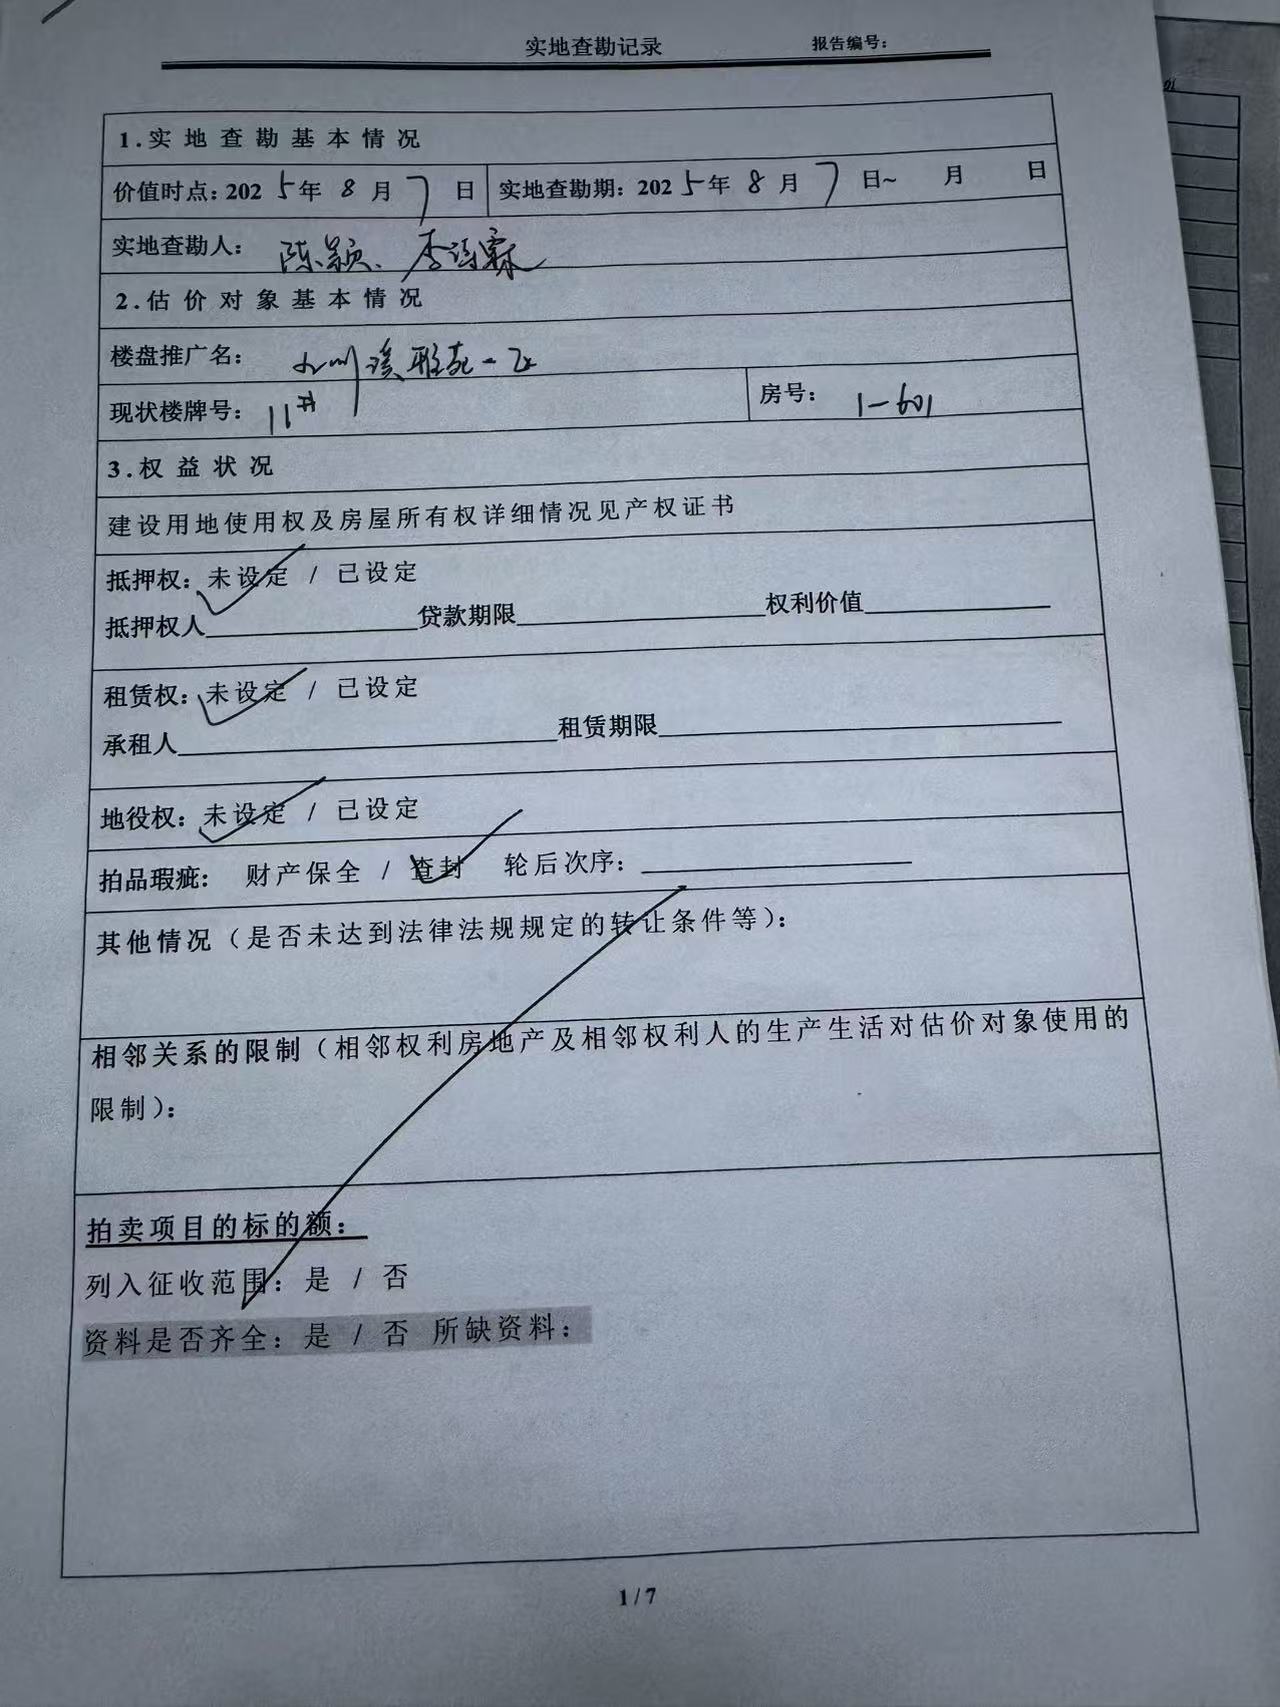 实地查勘记录 报告编号：
1.实地查勘基本情况
价值时点：2025年8月7日 实地查勘期：2025年8月7日~ 月 日
实地查勘人：陈颖、李
2.估价对象基本情况
楼盘推广名：九川溪雅苑一区
现状楼牌号：11# 房号：1-601
3.权益状况
建设用地使用权及房屋所有权详细情况见产权证书
抵押权：未设定 / 已设定
抵押权人 贷款期限 权利价值
租赁权：未设定 / 已设定
承租人 租赁期限
地役权：未设定 / 已设定
拍品瑕疵： 财产保全 / 查封 轮后次序：
其他情况（是否未达到法律法规规定的转让条件等）：
相邻关系的限制（相邻权利房地产及相邻权利人的生产生活对估价对象使用的
限制）：
拍卖项目的标的额：
列入征收范围：是 / 否
资料是否齐全：是 / 否 所缺资料：
1 / 7